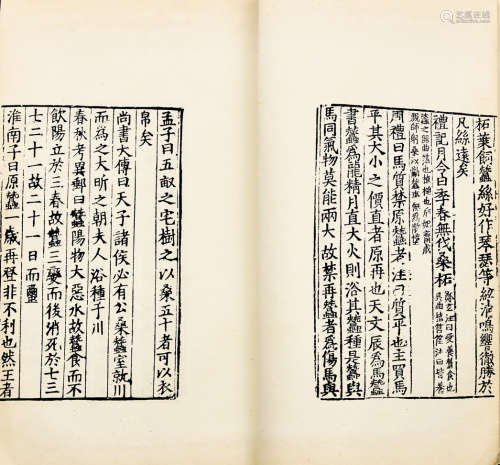 柘葉飼蠶絲好作琴瑟等絃清鳴響徹勝於
凡絲遠矣
禮記月令曰季春無伐桑柘鄭玄注曰愛養蠶食也
具曲植筥筐注曰皆養
蠶之器曲箔也植槌也后妃齋戒
親帥躬桑以勸蠶事無為散惰
周禮曰馬質禁原蠶者注曰質平也主買馬
平其大小之價直者原再也天文辰為馬蠶
書蠶為龍精月直大火則浴其蠶種是蠶與
馬同氣物莫能兩大故禁再蠶者為傷馬與
孟子曰五畝之宅樹之以桑五十者可以衣
帛矣
尚書大傳曰天子諸侯必有公桑蠶室就川
而為之大昕之朝夫人浴種于川
春秋考異郵曰蠶陽物大惡水故蠶食而不
飲陽立於三春故蠶三變而後消死於七三
七二十一故二十一日而繭
淮南子曰原蠶一歲再登非不利也然王者